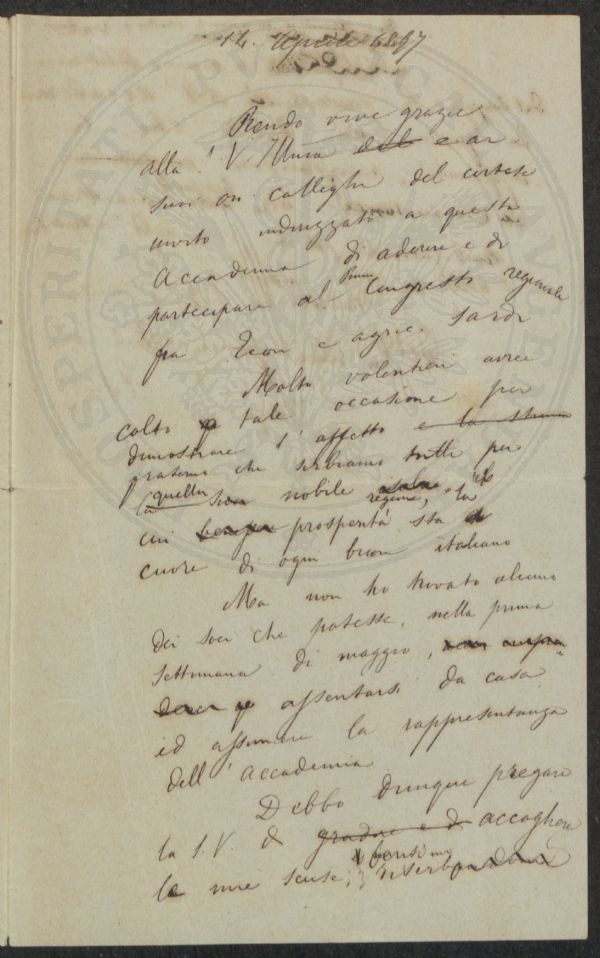 14. Aprile 1897
Rendo vive grazie
alla S. V. Illma e ai
suoi on. colleghi del cortese
invito indirizzato a questa
Accademia di aderire e di
partecipare al Primo Congresso regionale
fra econ e agric. sardi
Molto volentieri avrei
colto tale occasione per
dimostrare l'affetto e la stima
fraterni che serbiamo tutti per
la quella sua nobile regione, la
cui prosperità sta
cuore di ogni buon italiano
Ma non ho trovato alcuno
dei soci che potesse, nella prima
settimana di maggio,
assentarsi da casa
ed assumere la rappresentanza
dell'Accademia
Debbo dunque pregare
la S. V. di gradire e di accogliere
le mie scuse,